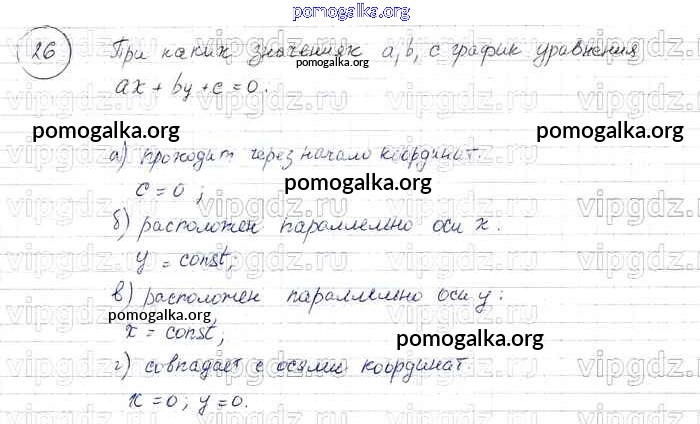 pomogalka.org
26 При каких значениях a, b, c график уравнения
pomogalka.org
ax + by + c = 0.
vipgdz.ru vipgdz.ru vipgdz.ru
pomogalka.org pomogalka.org
а) проходит через начало координат.
c = 0;
pomogalka.org
vipgdz.ru vipgdz.ru vipgdz.ru
б) расположен параллельно оси x.
y = const;
vipgdz.ru vipgdz.ru vipgdz.ru
в) расположен параллельно оси y:
pomogalka.org
x = const;
pomogalka.org
г) совпадает с осями координат.
vipgdz.ru vipgdz.ru vipgdz.ru
x = 0; y = 0.
pomogalka.org